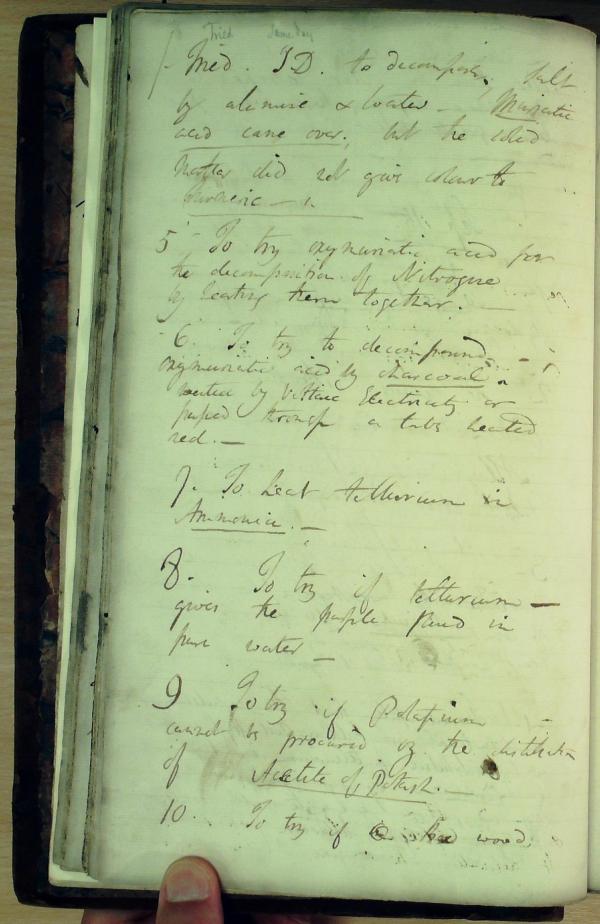 Tried Same day
Tried. J D. to decompose salt
by alumine & water — Muriatic
acid came over; but the solid
matter did not give colour to
turmeric —
5 To try oxymuriatic acid for
the decomposition of Nitrogene
by heating them together. —
6. To try to decompound
oxymuriatic acid by charcoal
heated by Voltaic Electricity or
passed through a tube heated
red. —
7. To heat tellurium in
Ammonia. —
8. To try if tellurium —
gives the purple fluid in
pure water —
9 To try if Potassium
cannot be procured by the distillation
of Acetite of Potash. —
10. To try if wood